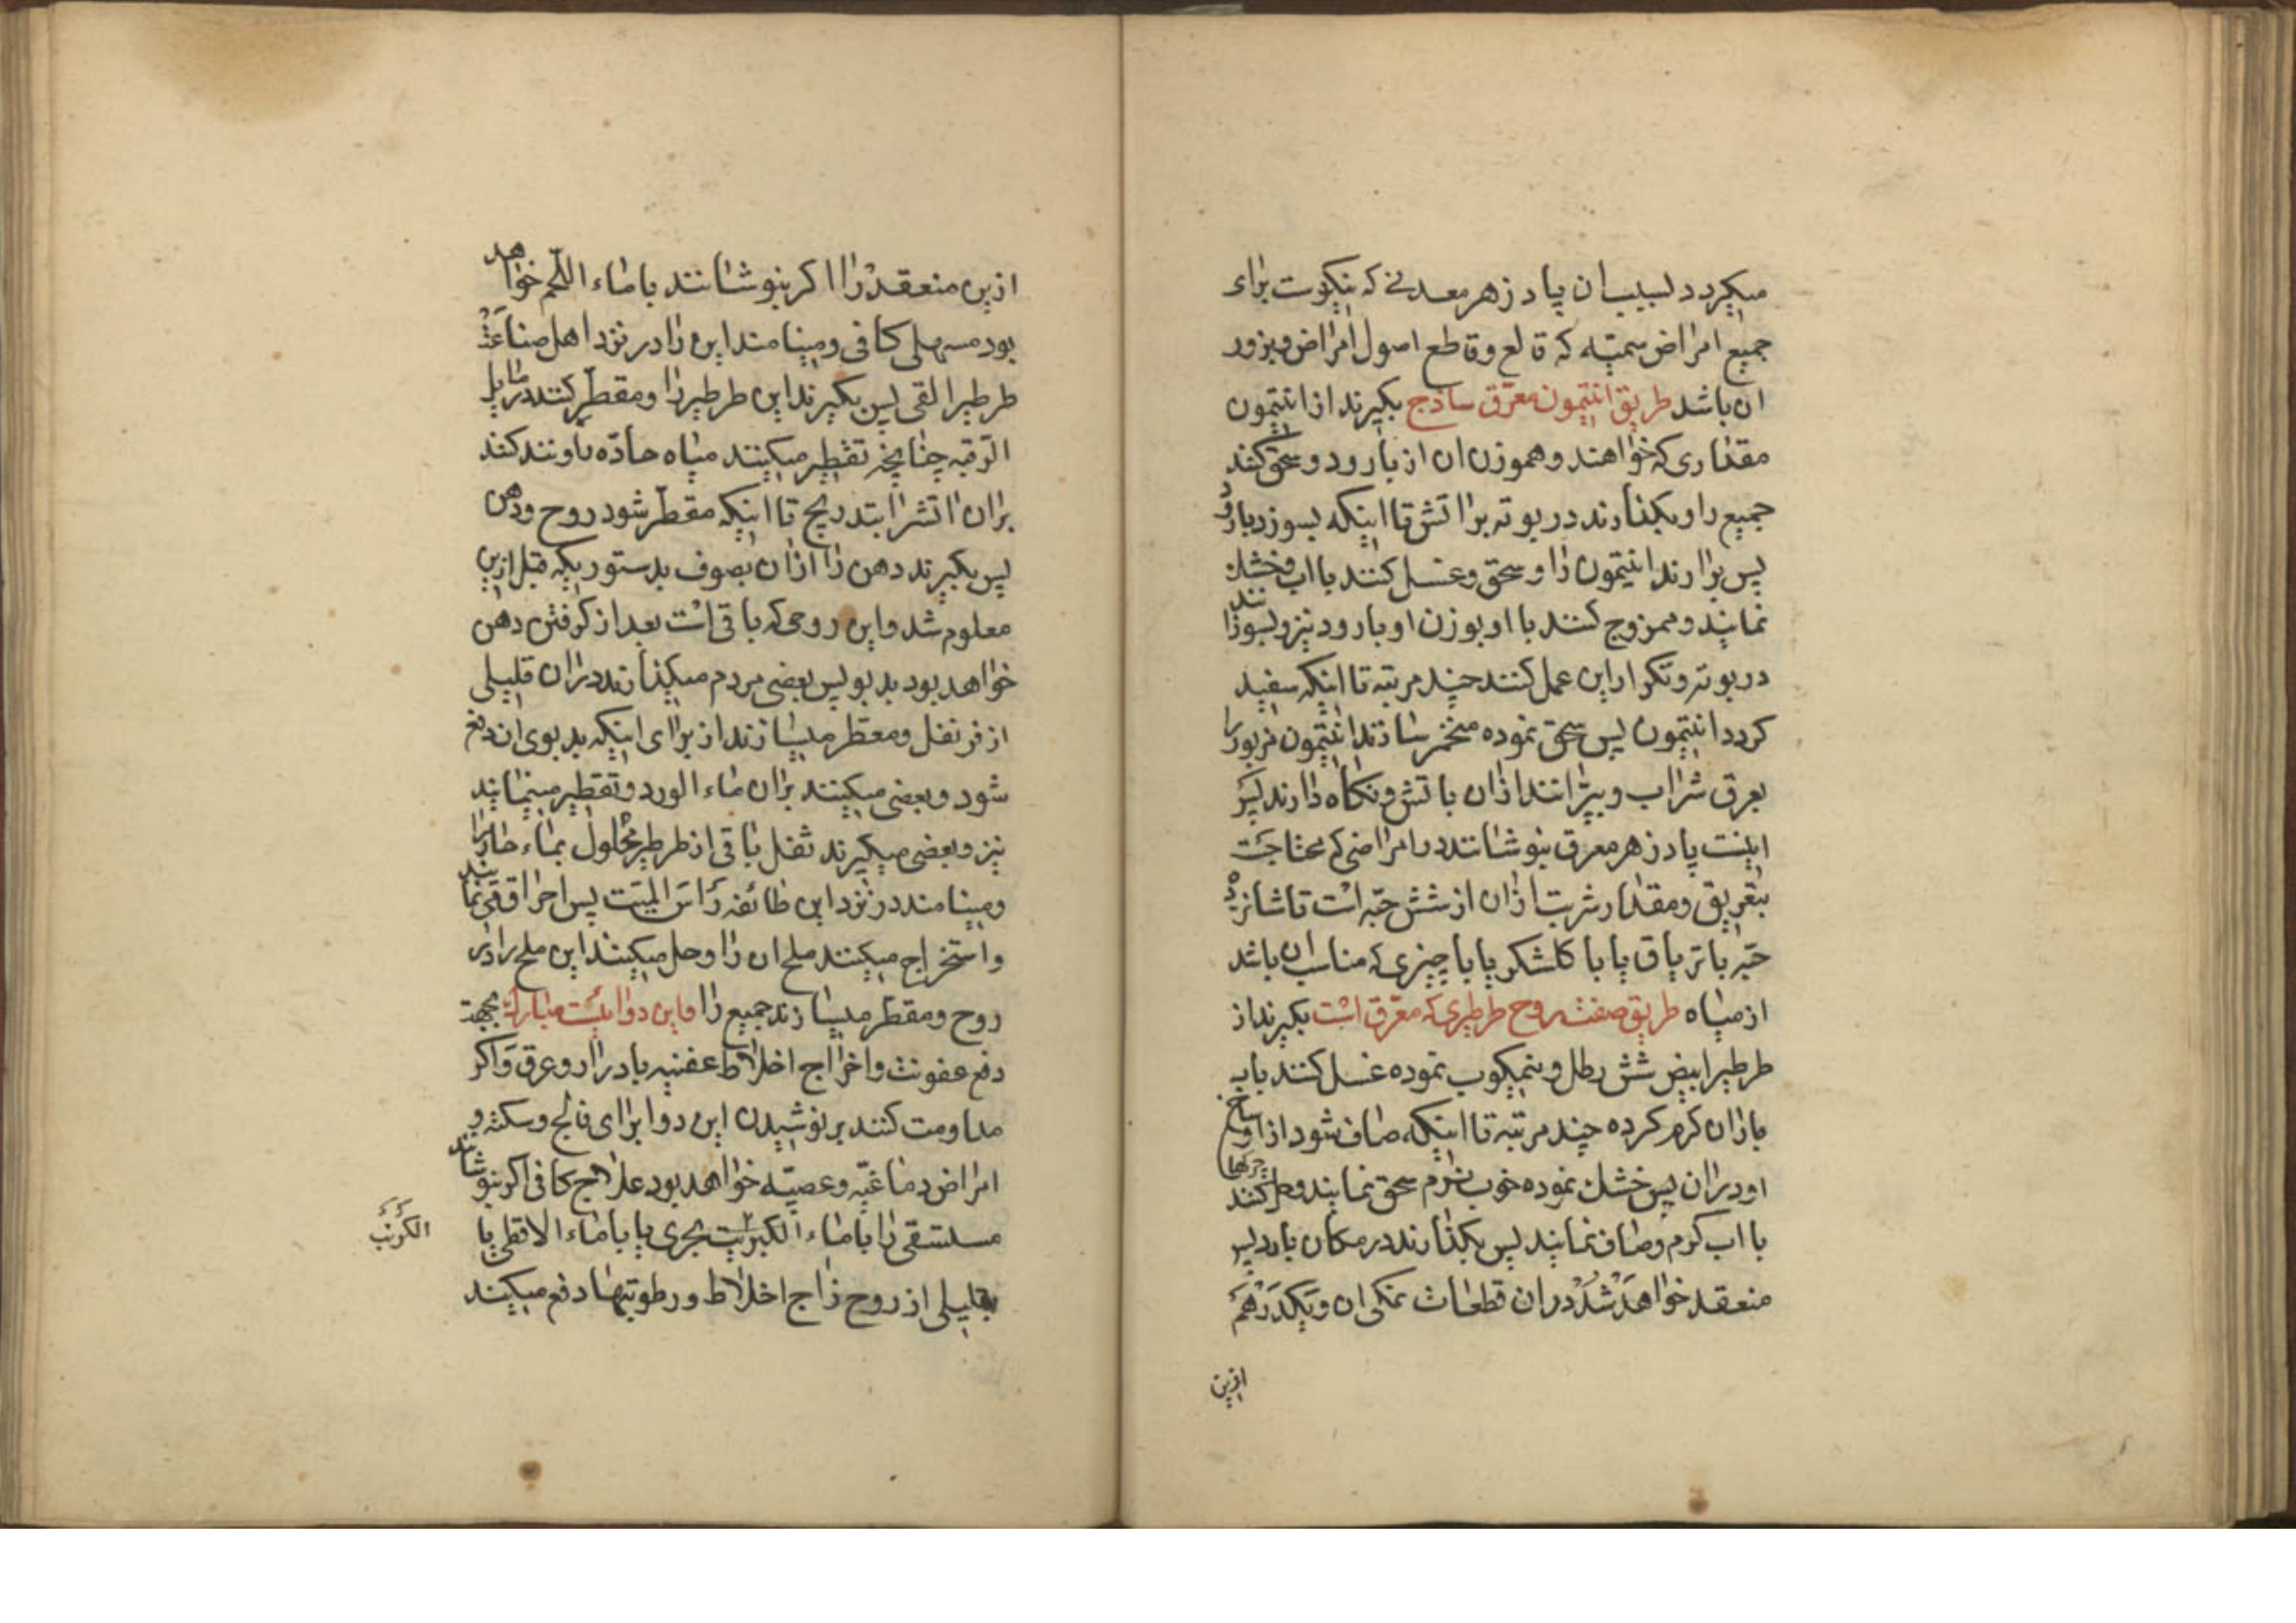 میکردد لبیسان پاد زهر معدنی که نیکوست برای
جمیع امراض سمیّه که قالع وقاطع اصول امراض وبزور
ان باشد طریق انتیمون معرّق ساذج بکیرند از انتیمون
مقداری که خواهند وهموزن ان از بارود و سحق کنند
جمیع را وبکذارند در بوته بر اتش تا اینکه بسوزد بارود
پس برارند انتیمون را و سحق وغسل کنند با اب وخشک
نمایند وممزوج کنند با او بوزن او بارود نیز وبسوزانند
در بوته وتکرار این عمل کنند چند مرتبه تا اینکه سفید
کردد انتیمون پس سحق نموده مخمّر سازند انتیمون مزبور را
بعرق شراب وبپرّانند ازان باتش ونکاه دارند پس
اینست پاد زهر معرق بنوشانند در امراضی که محتاجست
بتعریق ومقدار شربت ازان از شش حبّه است تا شانزده
حبّه با تریاق یا با کلشکر یا با چیزی که مناسب ان باشد
از میاه طریق صفت روح طرطیری که معرّق است بکیرند از
طرطیر ابیض شش رطل و نیمکوب نموده غسل کنند باب
باران کرم کرده چند مرتبه تا اینکه صاف شود از اوساخ
چرکها
او دران پس خشک نموده خوب نرم سحق نمایند وحل کنند
با اب کرم وصاف نمایند پس بکذارند در مکان بارد پس
منعقد خواهد شد دران قطعات نمکی ان ویکدرهم
ازین
ازین منعقد را اکر بنوشانند با ماء اللّحم خواهد
بود مسهلی کافی ومینامند این را در نزد اهل صناعت
طرطیر القی پس بکیرند این طرطیر را ومقطّر کنند در مایل
الرّقبه چنانچه تقطیر میکنند میاه حادّه را وتند کنند
بران اتش را بتدریج تا اینکه مقطّر شود روح ودهن
پس بکیرند دهن را ازان بصوف بدستوریکه قبل ازین
معلوم شد واین روحی که باقی است بعد از کرفتن دهن
خواهد بود بدبو پس بعضی مردم میکذارند دران قلیلی
از قرنفل ومعطّر میسازند از برای اینکه بدبوی ان دفع
شود وبعضی میکنند بران ماء الورد وتقطیر مینمایند
نیز وبعضی میکیرند ثفل باقی از طرطیر محلول بماء حار را
ومینامند در نزد این طائفه رأس المیّت پس احراق قی نمایند
واستخراج میکنند ملح ان را وحل میکنند این ملح را در
روح ومقطّر میسازند جمیع را واین دوائیست مبارک بجهة
دفع عفونت واخراج اخلاط عفنیه بادرار وعرق واکر
مداومت کنند بر نوشیدن این دوا برای فالج وسکته و
امراض دماغیّه وعصبیّه خواهد بود علاج کافی اکر بنوشانند
مستسقی را با ماء الکبریت بحری یا با ماء الاقطی یا
الکرنب
بقلیلی از روح زاج اخلاط ورطوبتها دفع میکنند